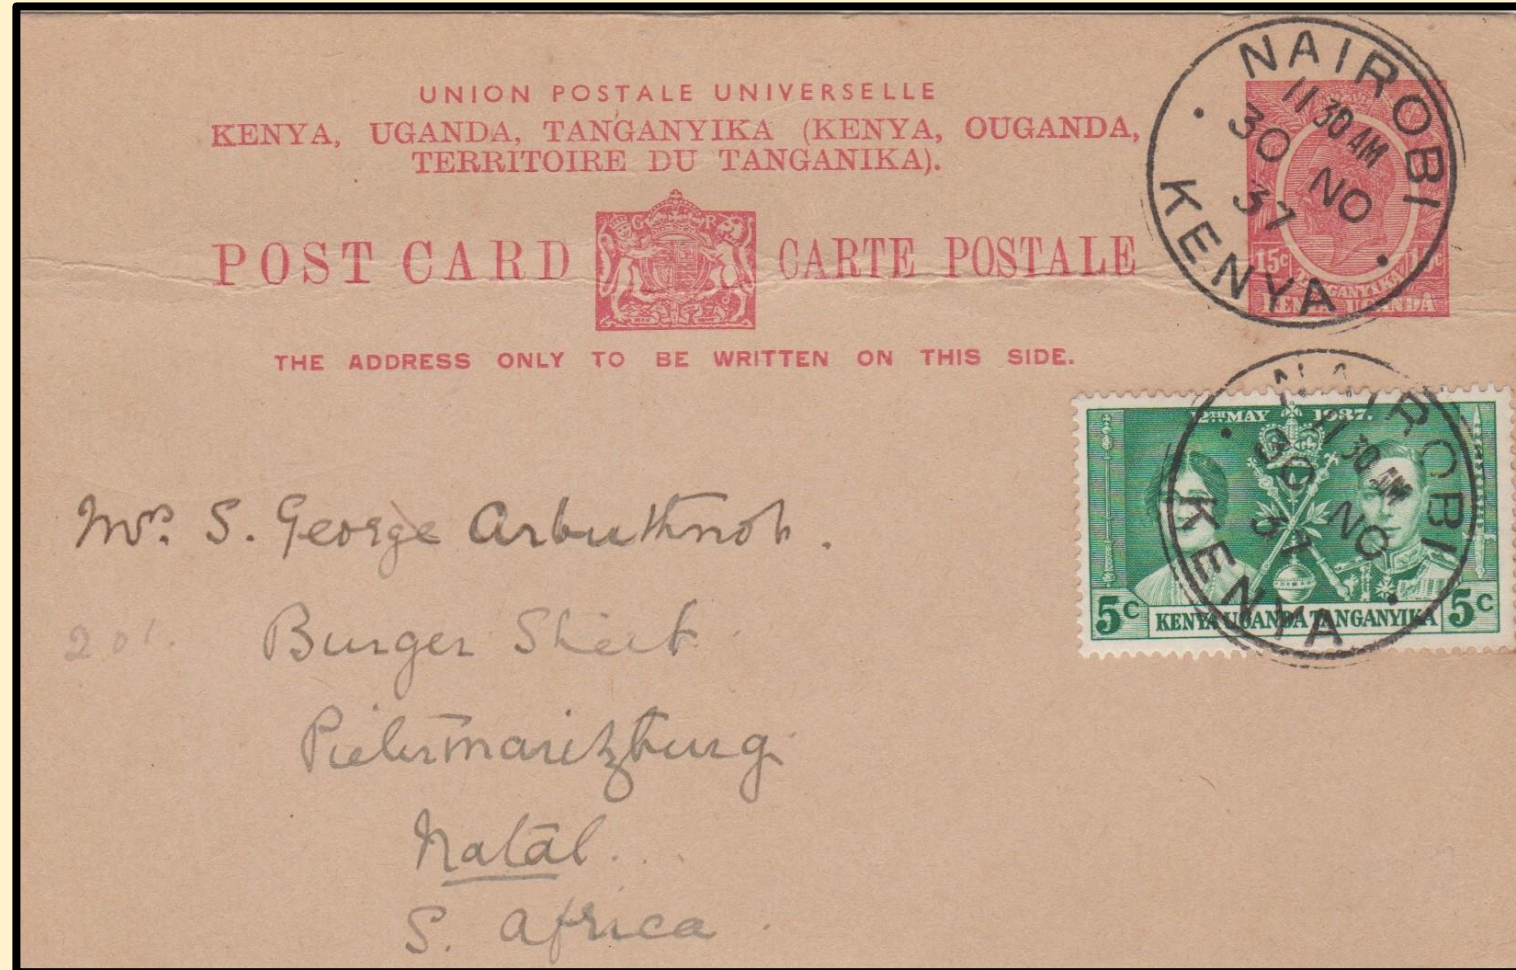 UNION POSTALE UNIVERSELLE
KENYA, UGANDA, TANGANYIKA (KENYA, OUGANDA,
TERRITOIRE DU TANGANIKA).
POST CARD CARTE POSTALE
THE ADDRESS ONLY TO BE WRITTEN ON THIS SIDE.
NAIROBI
11 30 AM
30 NO
37
KENYA
15c 15c
TANGANYIKA
KENYA UGANDA
12TH MAY 1937.
NAIROBI
11 30 AM
30 NO
37
KENYA
5c KENYA UGANDA TANGANYIKA 5c
Mrs. S. George Arbuthnot.
201. Burger Street.
Pietermaritzburg.
Natal.
S. Africa.